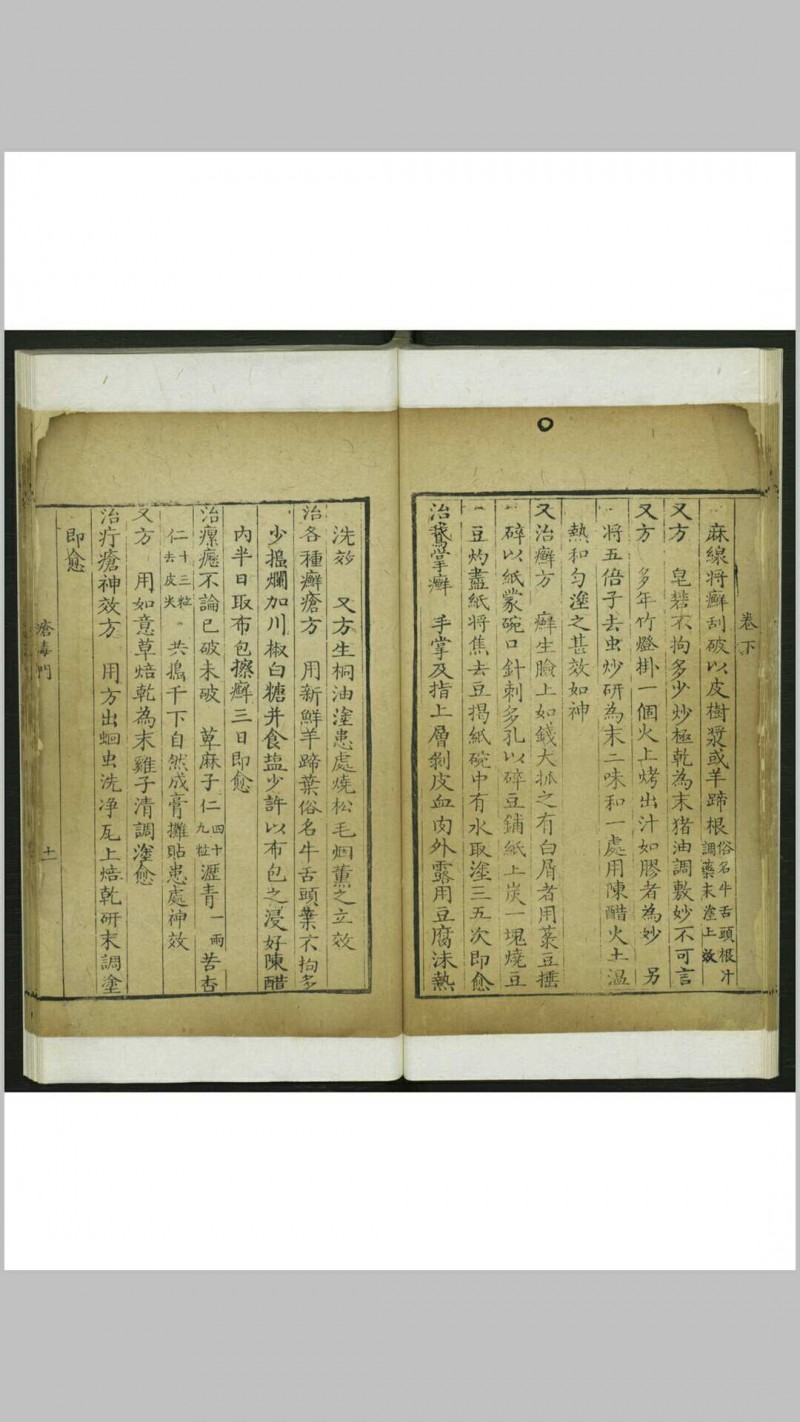 卷下
麻線將癬刮破以皮樹漿或羊蹄根俗名牛舌頭根汁調藥末塗上效
又方　皂礬不拘多少炒極乾為末猪油調敷妙不可言
又方　多年竹燈掛一個火上烤出汁如膠者為妙　另
將五倍子去虫炒研為末二味和一處用陳醋火上溫
熱和勻塗之甚效如神
又治癬方　癬生臉上如錢大抓之有白屑者用菉豆搖
碎以紙蒙碗口針刺多孔以碎豆鋪紙上炭一塊燒豆
豆灼盡紙將焦去豆揭紙碗中有水取塗三五次即愈
治鵝掌癬　手掌及指上層剝皮血肉外露用豆腐沫熱
洗效　又方生桐油塗患處燒松毛烟薰之立效
治各種癬瘡方　用新鮮羊蹄葉俗名牛舌頭葉不拘多
少搗爛加川椒白糖并食盐少許以布包之浸好陳醋
內半日取布包擦癬三日即愈
治瘰癧不論已破未破　萆麻子仁四十九粒瀝青一兩苦杏
仁十三粒去皮尖　共搗千下自然成膏攤貼患處神效
又方　用如意草焙乾為末雞子清調塗愈
治疔瘡神效方　用方出蛔虫洗净瓦上焙乾研末調塗
即愈
瘡毒門
十一